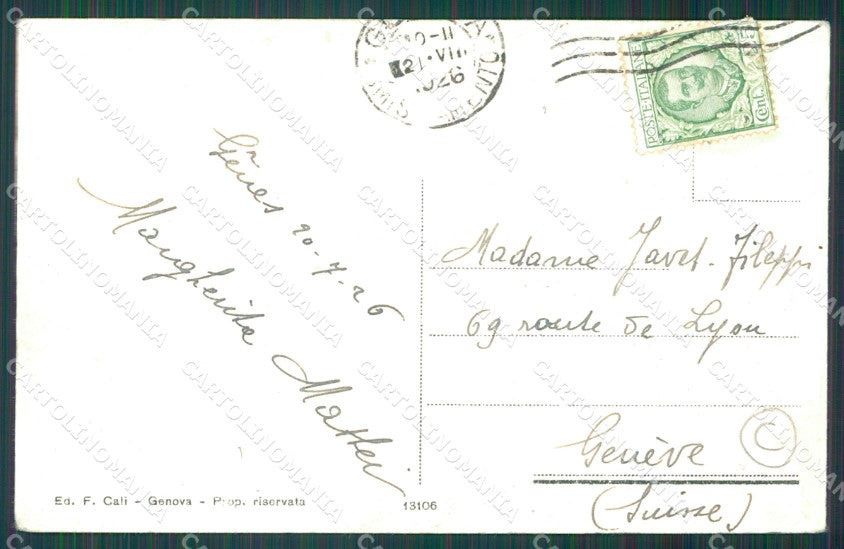 10-11
21·VII
1926
POSTE ITALIANE
Cent.
Gênes 20-7-26
Margherita Mattei
Madame Javet-Fileppi
69 route de Lyon
Genève
(Suisse)
Ed. F. Cali - Genova - Prop. riservata
13106
CARTOLINOMANIA